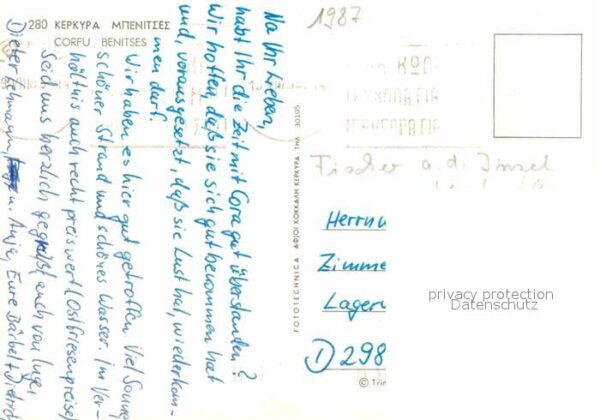 280 ΚΕΡΚΥΡΑ ΜΠΕΝΙΤΣΕΣ
CORFU BENITSES
1987
Na Ihr Lieben,
habt Ihr die Zeit mit Cora gut überstanden?
Wir hoffen, daß sie sich gut benommen hat
und, vorausgesetzt, daß sie Lust hat, wiederkom-
men darf.
Wir haben es hier gut getroffen. Viel Sonne
schöner Strand und schönes Wasser. Im Ver-
hältnis auch recht preiswert (Ostfriesenpreise)
Seid uns herzlich gegrüßt, auch von
Dieter u. Anja, Eure Bärbel + Dietrich
FOTOTECHNICA ΑΦΙΟΙ ΚΟΚΚΑΛΗ ΚΕΡΚΥΡΑ ΤΗΛ 30105
Fischer a. d. Insel
Herrn
Zimme
Lager
D 298
© Trim
privacy protection
Datenschutz